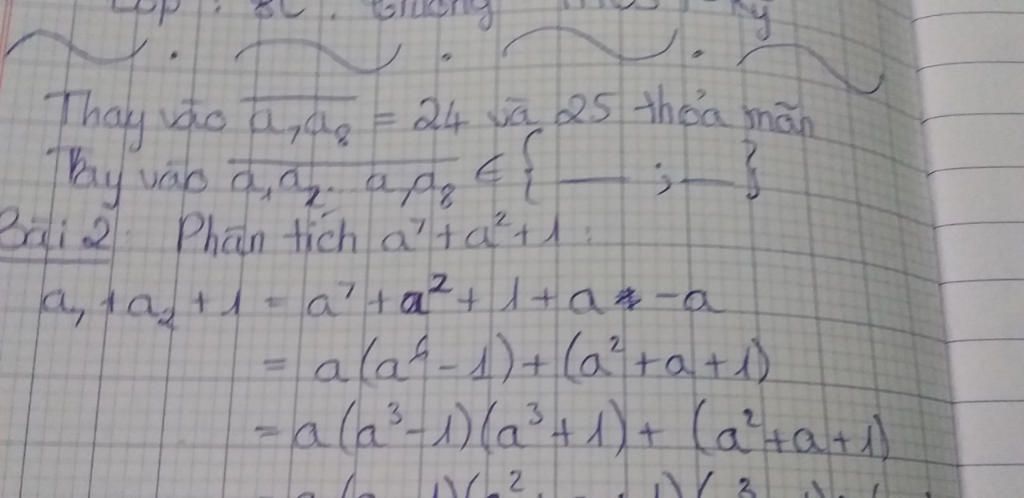 Lớp : 8C . Trường
Thay vào a₇a₈ = 24 và 25 thỏa mãn
Vậy vào a₁a₂... a₇a₈ ∈ { __ ; __ }
Bài 2: Phân tích a⁷+a²+1 :
a₇ + a₂ + 1 = a⁷ + a² + 1 + a - a
= a(a⁶ - 1) + (a² + a + 1)
= a(a³-1)(a³+1) + (a²+a+1)